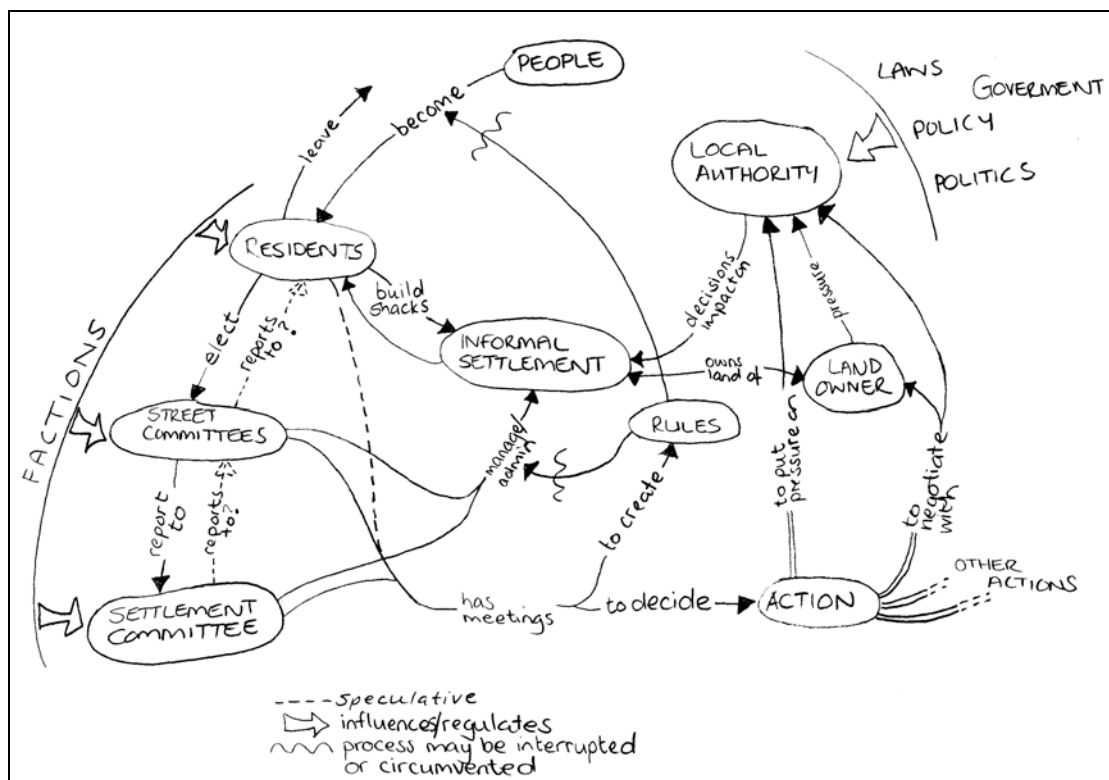 PEOPLE
LAWS
GOVERMENT
POLICY
POLITICS
LOCAL
AUTHORITY
become
leave
RESIDENTS
build
shacks
decisions
impact on
pressure
INFORMAL
SETTLEMENT
owns
land of
LAND
OWNER
elect
reports
to?
FACTIONS
STREET
COMMITTEES
manage/
admin
RULES
to put
pressure on
to
negotiate
with
report
to
reports
to?
to create
SETTLEMENT
COMMITTEE
has
meetings
to decide
ACTION
OTHER
ACTIONS
speculative
influences/regulates
process may be interrupted
or circumvented